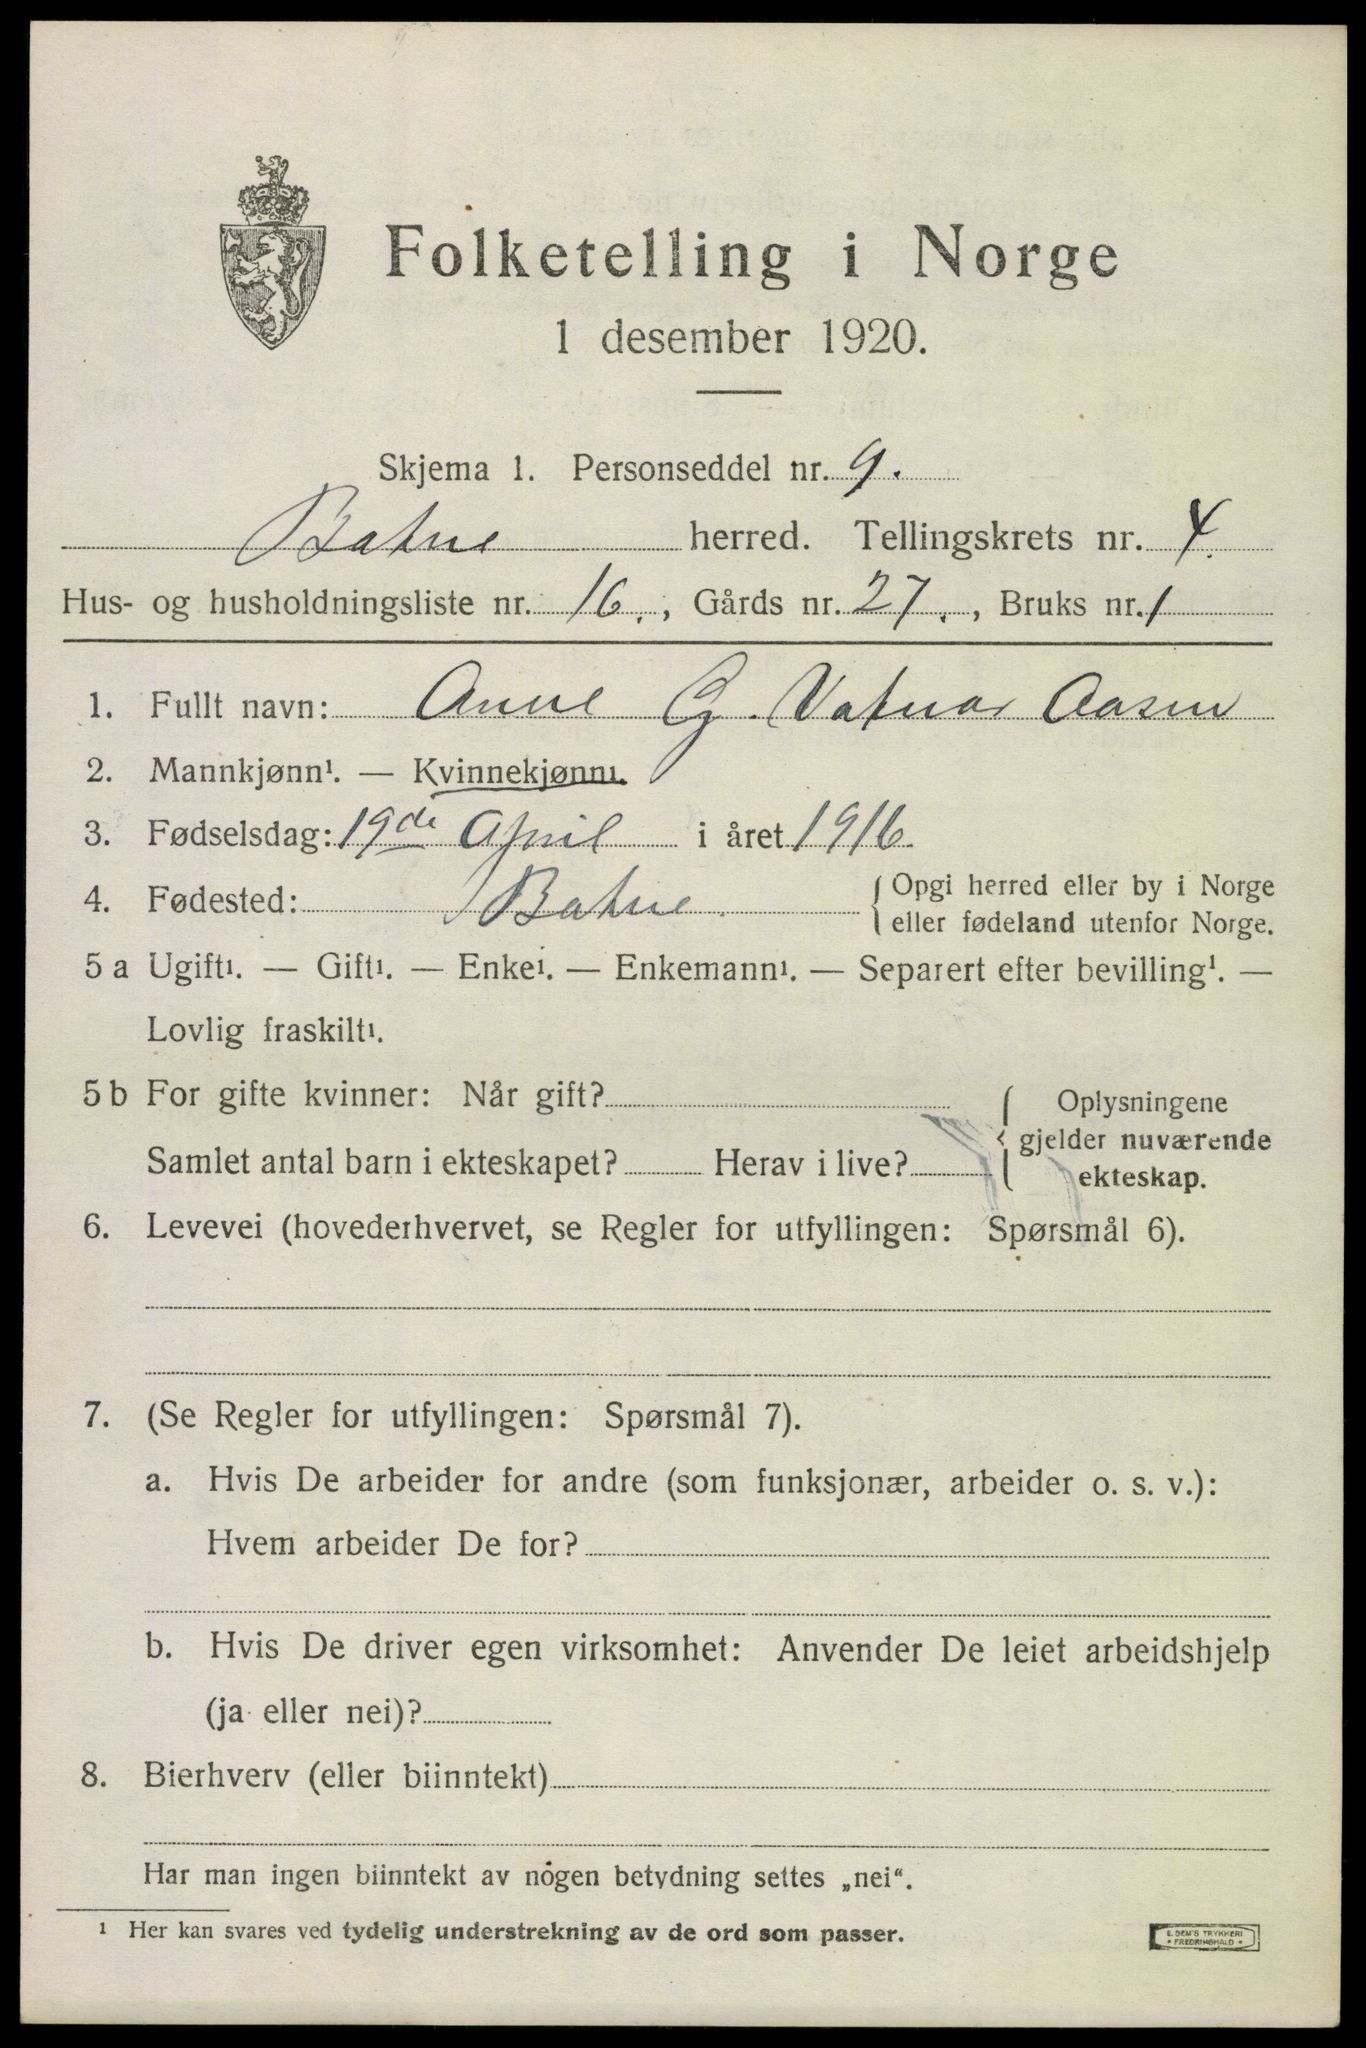 Folketelling i Norge
1 desember 1920.
Skjema 1. Personseddel nr. 9.
Batne herred. Tellingskrets nr. 4.
Hus- og husholdningsliste nr. 16., Gårds nr. 27., Bruks nr. 1
1. Fullt navn: Anne G. Vatnar Aasen
2. Mannkjønn¹. — Kvinnekjønn¹.
3. Fødselsdag: 19de April i året 1916.
4. Fødested: Batne. { Opgi herred eller by i Norge
eller fødeland utenfor Norge.
5 a Ugift¹. — Gift¹. — Enke¹. — Enkemann¹. — Separert efter bevilling¹. —
Lovlig fraskilt¹.
5 b For gifte kvinner: Når gift?
Samlet antal barn i ekteskapet? Herav i live?
{ Oplysningene
gjelder nuværende
ekteskap.
6. Levevei (hovederhvervet, se Regler for utfyllingen: Spørsmål 6).
7. (Se Regler for utfyllingen: Spørsmål 7).
a. Hvis De arbeider for andre (som funksjonær, arbeider o. s. v.):
Hvem arbeider De for?
b. Hvis De driver egen virksomhet: Anvender De leiet arbeidshjelp
(ja eller nei)?
8. Bierhverv (eller biinntekt)
Har man ingen biinntekt av nogen betydning settes „nei“.
¹ Her kan svares ved tydelig understrekning av de ord som passer.
E. DEM'S TRYKKERI
• FREDRIKSHALD •